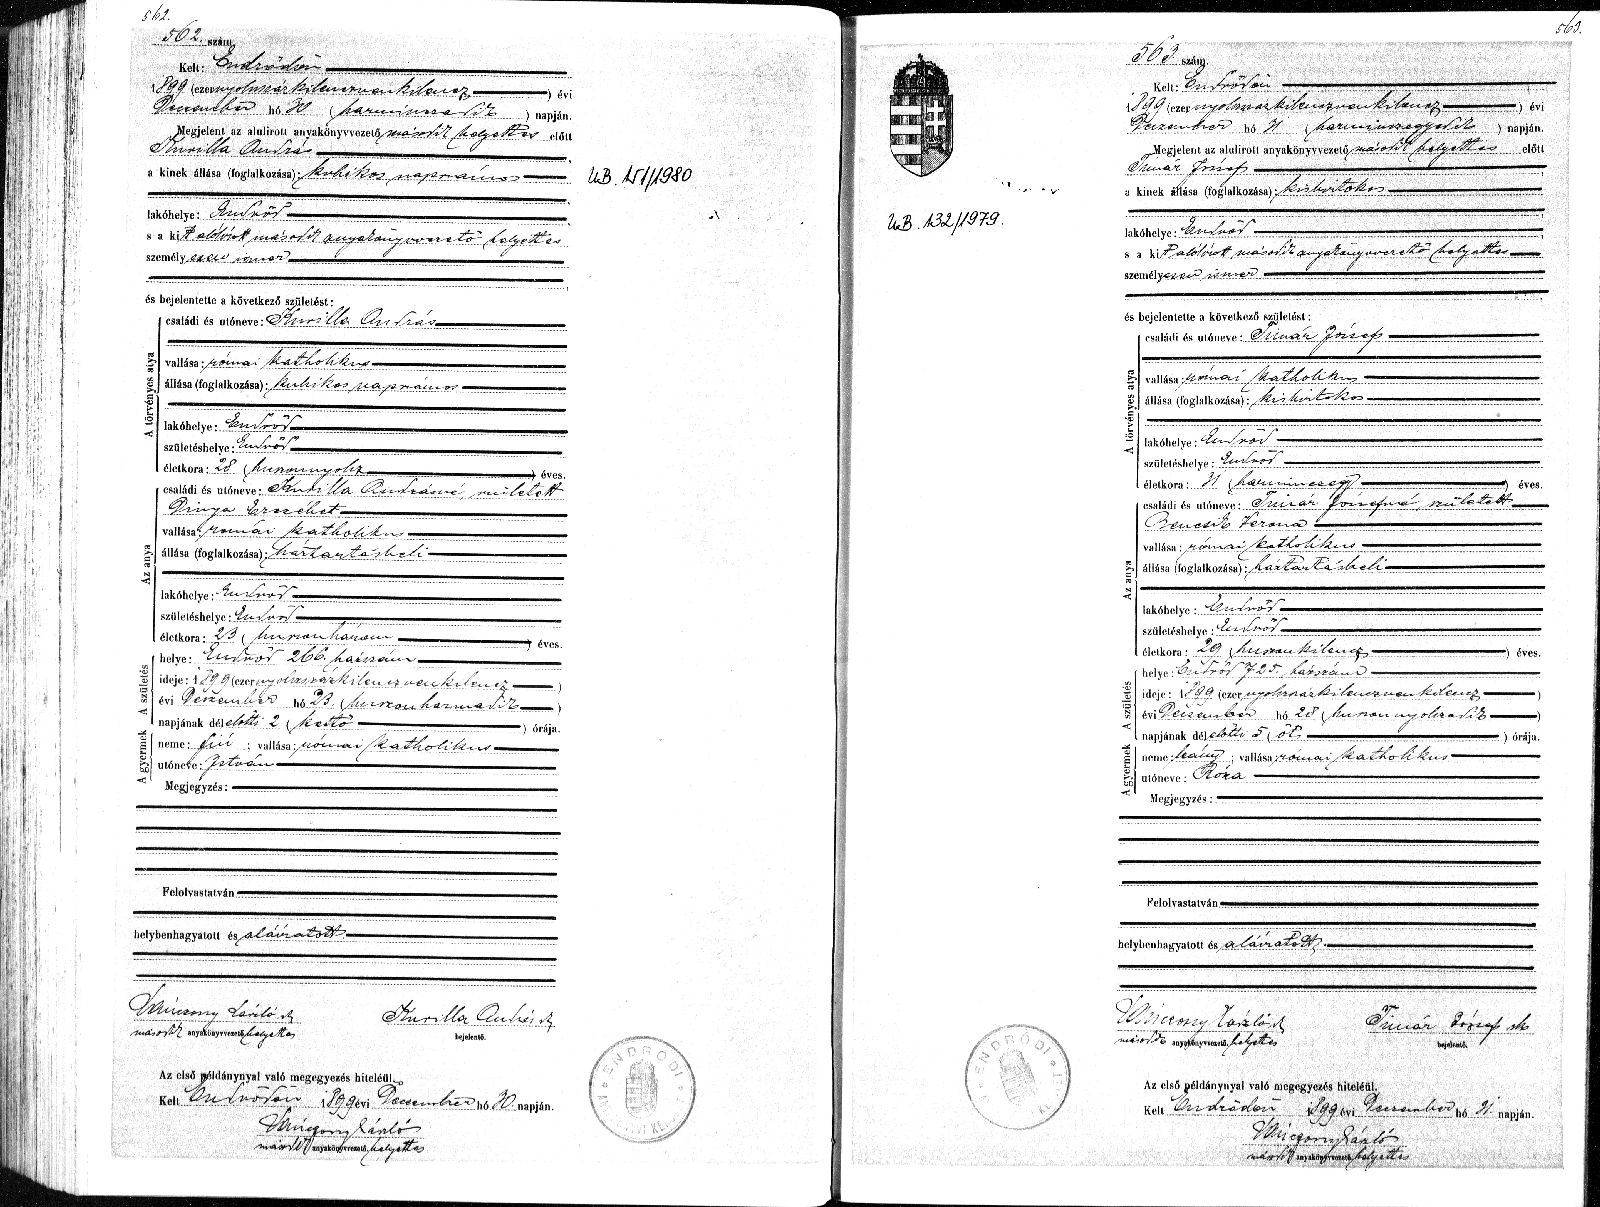 562.
562. szám.
Kelt: Endrődön
1899 (ezernyolczszázkilenczvenkilencz) évi
Deczember hó 30 (harminczadik) napján.
Megjelent az alulirott anyakönyvvezető második helyettes előtt
Kurilla András
a kinek állása (foglalkozása): kubikos napszámos
lakóhelye: Endrőd
s a kit alólirott második anyakönyvvezető helyettes
személyesen ismer
és bejelentette a következő születést:
A törvényes atya
családi és utóneve: Kurilla András
vallása: római katholikus
állása (foglalkozása): kubikos napszámos
lakóhelye: Endrőd
születéshelye: Endrőd
életkora: 28 (huszonnyolcz) éves.
Az anya
családi és utóneve: Kurilla Andrásné, született
Dinya Erzsébet
vallása: római katholikus
állása (foglalkozása): háztartásbeli
lakóhelye: Endrőd
születéshelye: Endrőd
életkora: 23 (huszonhárom) éves.
A születés
helye: Endrőd 266. házszám
ideje: 1899 (ezernyolczszázkilenczvenkilencz)
évi Deczember hó 23. (huszonharmadik)
napjának délelőtti 2 (kettő) órája.
A gyermek
neme: fiú; vallása: római katholikus
utóneve: István
Megjegyzés:
Felolvastatván
helybenhagyatott és aláiratott
László sk
Kurilla András sk
második anyakönyvvezető helyettes
bejelentő.
Az első példánynyal való megegyezés hiteléül.
Kelt Endrődön 1899 évi Deczember hó 30. napján.
László
második anyakönyvvezető helyettes
UB. 151/1980
ENDRŐDI
563.
563 szám.
Kelt: Endrődön
1899 (ezernyolczszázkilenczvenkilencz) évi
Deczember hó 31 (harminczegyedik) napján.
Megjelent az alulirott anyakönyvvezető második helyettes előtt
Timár József
a kinek állása (foglalkozása): kisbirtokos
lakóhelye: Endrőd
s a kit alólirott második anyakönyvvezető helyettes
személyesen ismer
és bejelentette a következő születést:
A törvényes atya
családi és utóneve: Timár József
vallása: római katholikus
állása (foglalkozása): kisbirtokos
lakóhelye: Endrőd
születéshelye: Endrőd
életkora: 31 (harminczegy) éves.
Az anya
családi és utóneve: Timár Józsefné, született
Bencsik Verona
vallása: római katholikus
állása (foglalkozása): háztartásbeli
lakóhelye: Endrőd
születéshelye: Endrőd
életkora: 29 (huszonkilencz) éves.
A születés
helye: Endrőd 725. házszám
ideje: 1899 (ezernyolczszázkilenczvenkilencz)
évi Deczember hó 28 (huszonnyolczadik)
napjának délelőtti 5 (öt) órája.
A gyermek
neme: leány; vallása: római katholikus
utóneve: Róza
Megjegyzés:
Felolvastatván
helybenhagyatott és aláiratott
László sk
Timár József sk
második anyakönyvvezető helyettes
bejelentő.
Az első példánynyal való megegyezés hiteléül.
Kelt Endrődön 1899 évi Deczember hó 31. napján.
László
második anyakönyvvezető helyettes
UB. 132/1979.
ENDRŐDI